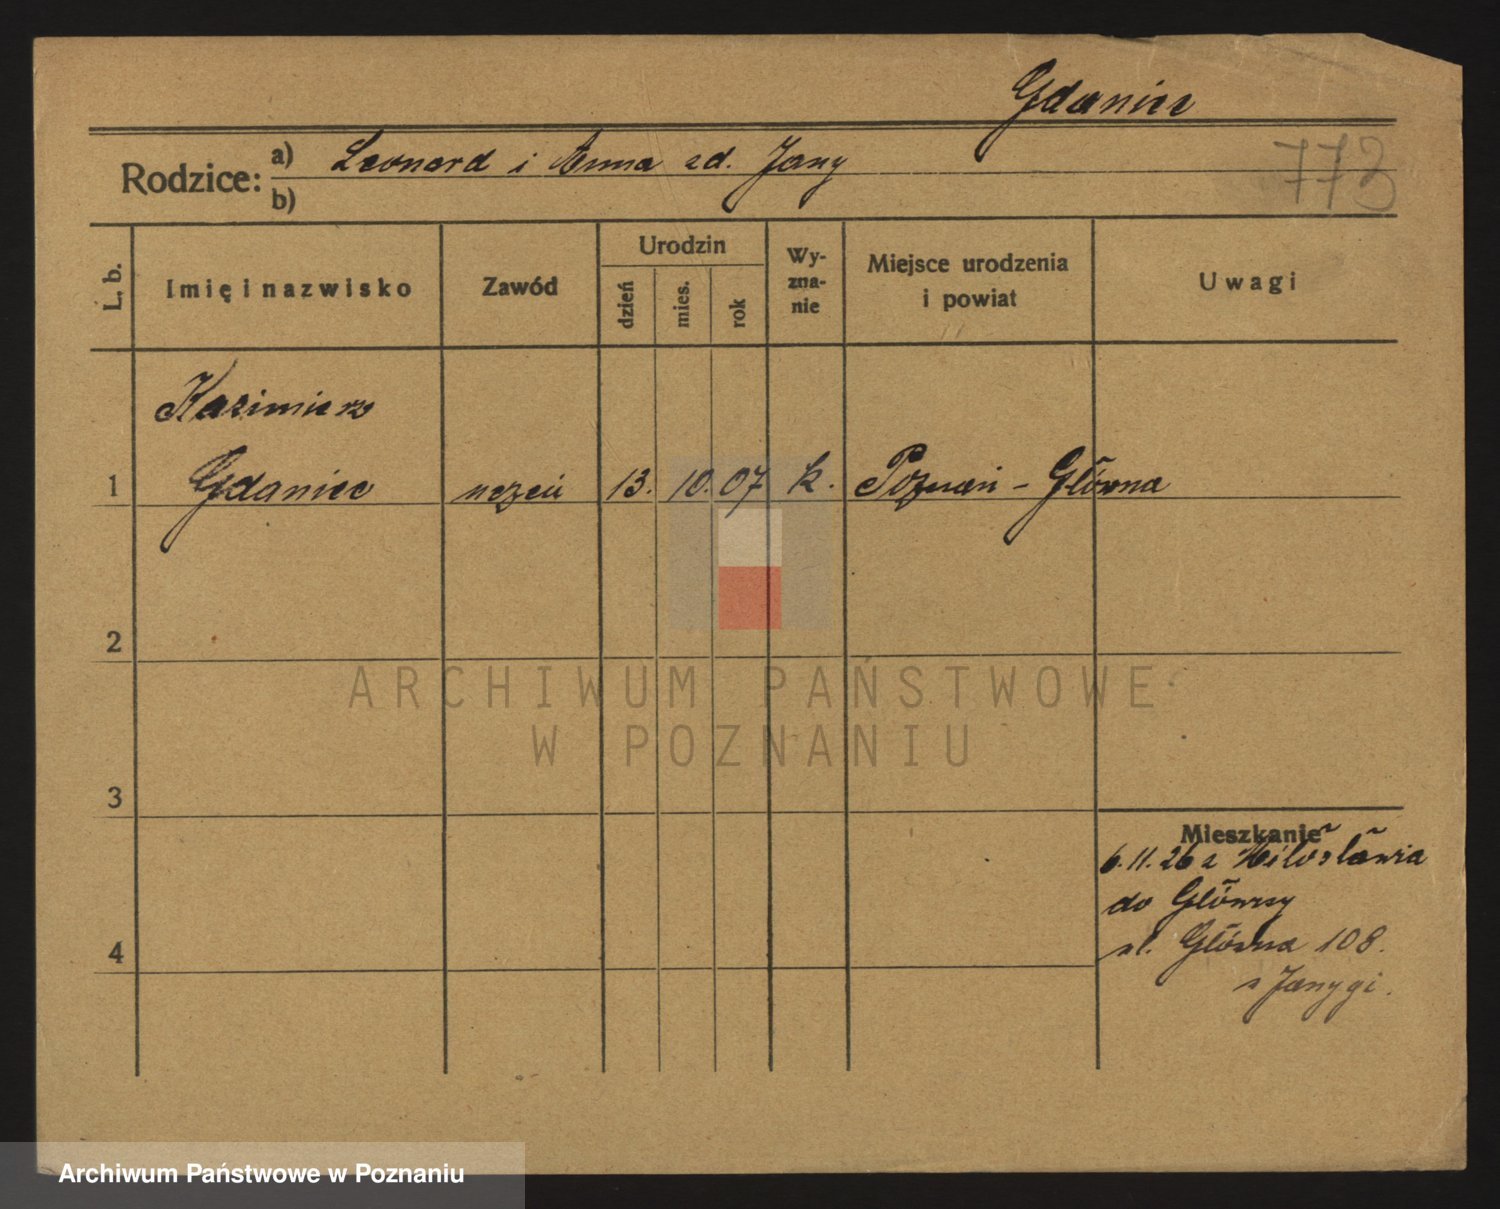 Gdaniec
773
Rodzice: a) Leonard i Anna zd. Jany
b)
L. b.
Imię i nazwisko
Zawód
Urodzin
dzień
mies.
rok
Wy-
zna-
nie
Miejsce urodzenia
i powiat
Uwagi
Kazimierz
1 Gdaniec uczeń 13. 10. 07 k. Poznań - Główna
2
ARCHIWUM PAŃSTWOWE
W POZNANIU
3
Mieszkanie
6.11.26 z Miłosławia
do Główny
ul. Główna 108.
4
Archiwum Państwowe w Poznaniu